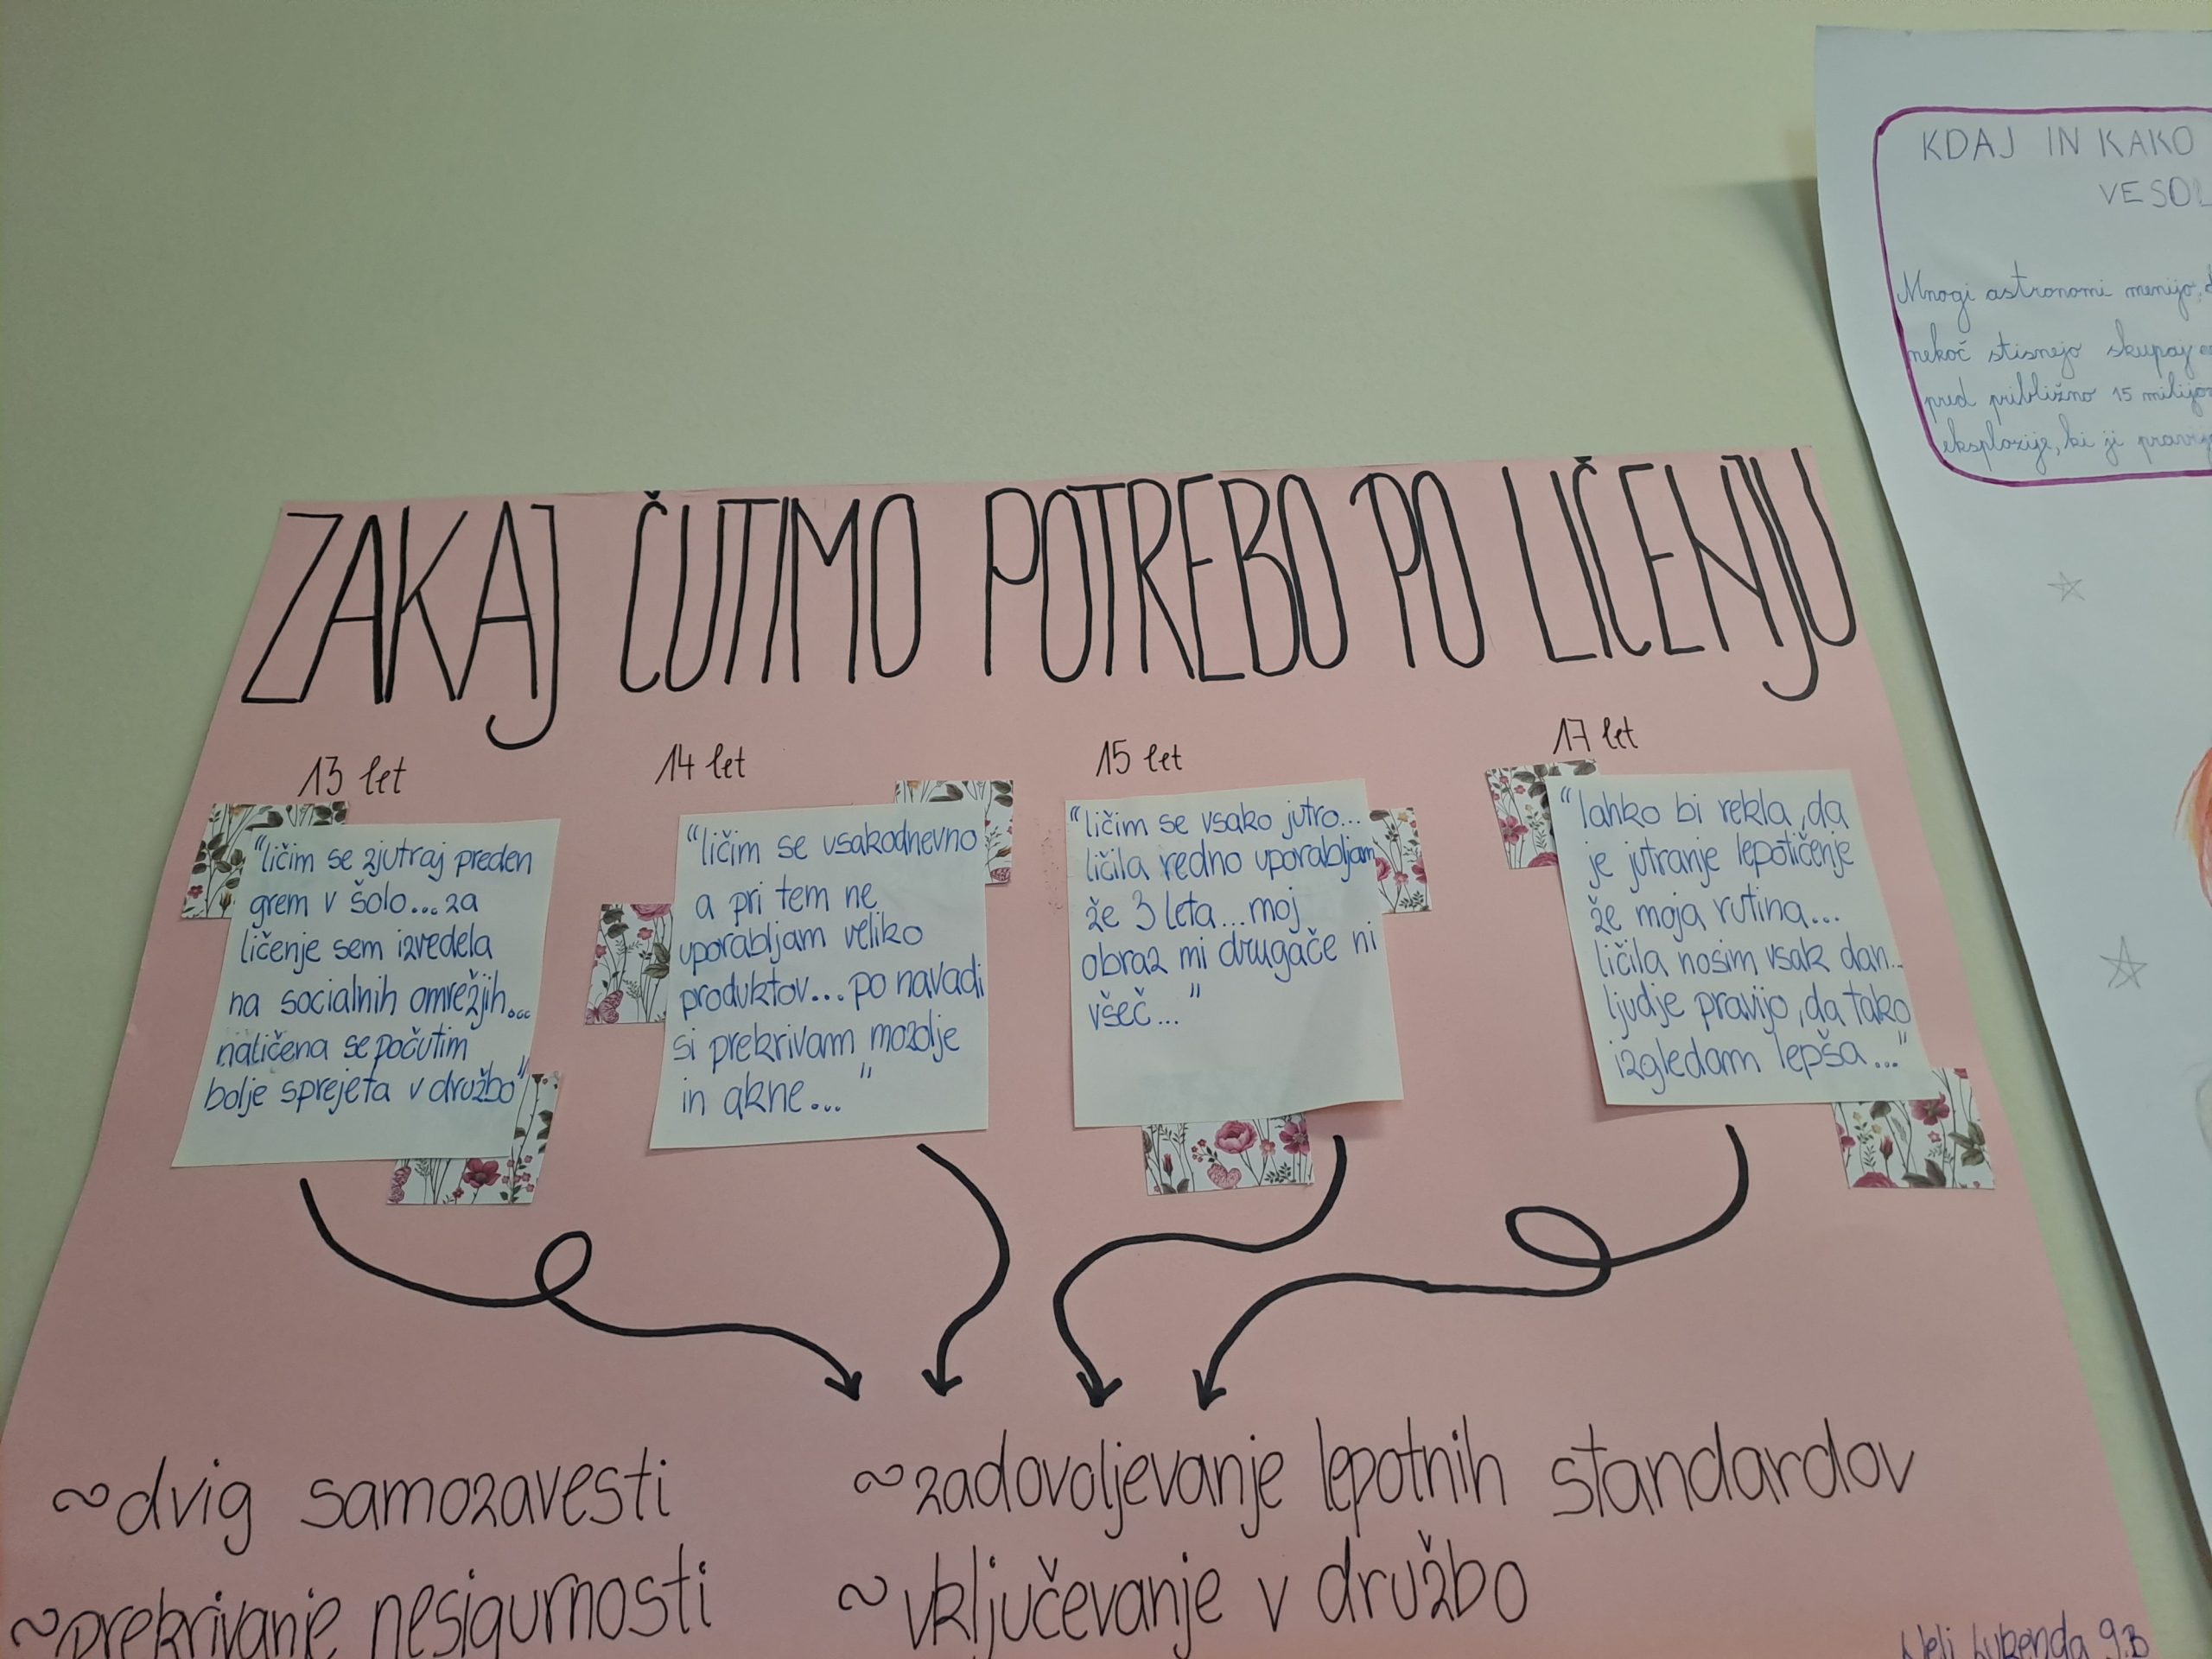 ZAKAJ ČUTIMO POTREBO PO LIČENJU
13 let
"ličim se zjutraj preden
grem v šolo...za
ličenje sem izvedela
na socialnih omrežjih...
naličena se počutim
bolje sprejeta v družbo"
14 let
"ličim se vsakodnevno
a pri tem ne
uporabljam veliko
produktov...po navadi
si prekrivam mozolje
in akne..."
15 let
"ličim se vsako jutro...
ličila redno uporabljam
že 3 leta...moj
obraz mi drugače ni
všeč..."
17 let
"lahko bi rekla, da
je jutranje lepotičenje
že moja rutina...
ličila nosim vsak dan...
ljudje pravijo, da tako
izgledam lepša..."
~dvig samozavesti
~prekrivanje nesigurnosti
~zadovoljevanje lepotnih standardov
~vključevanje v družbo
9.B
KDAJ IN KAKO
VESOL
Mnogi astronomi menijo,
nekoč stisnejo skupaj
pred približno 15 milijo
eksplozije, ki ji pravij